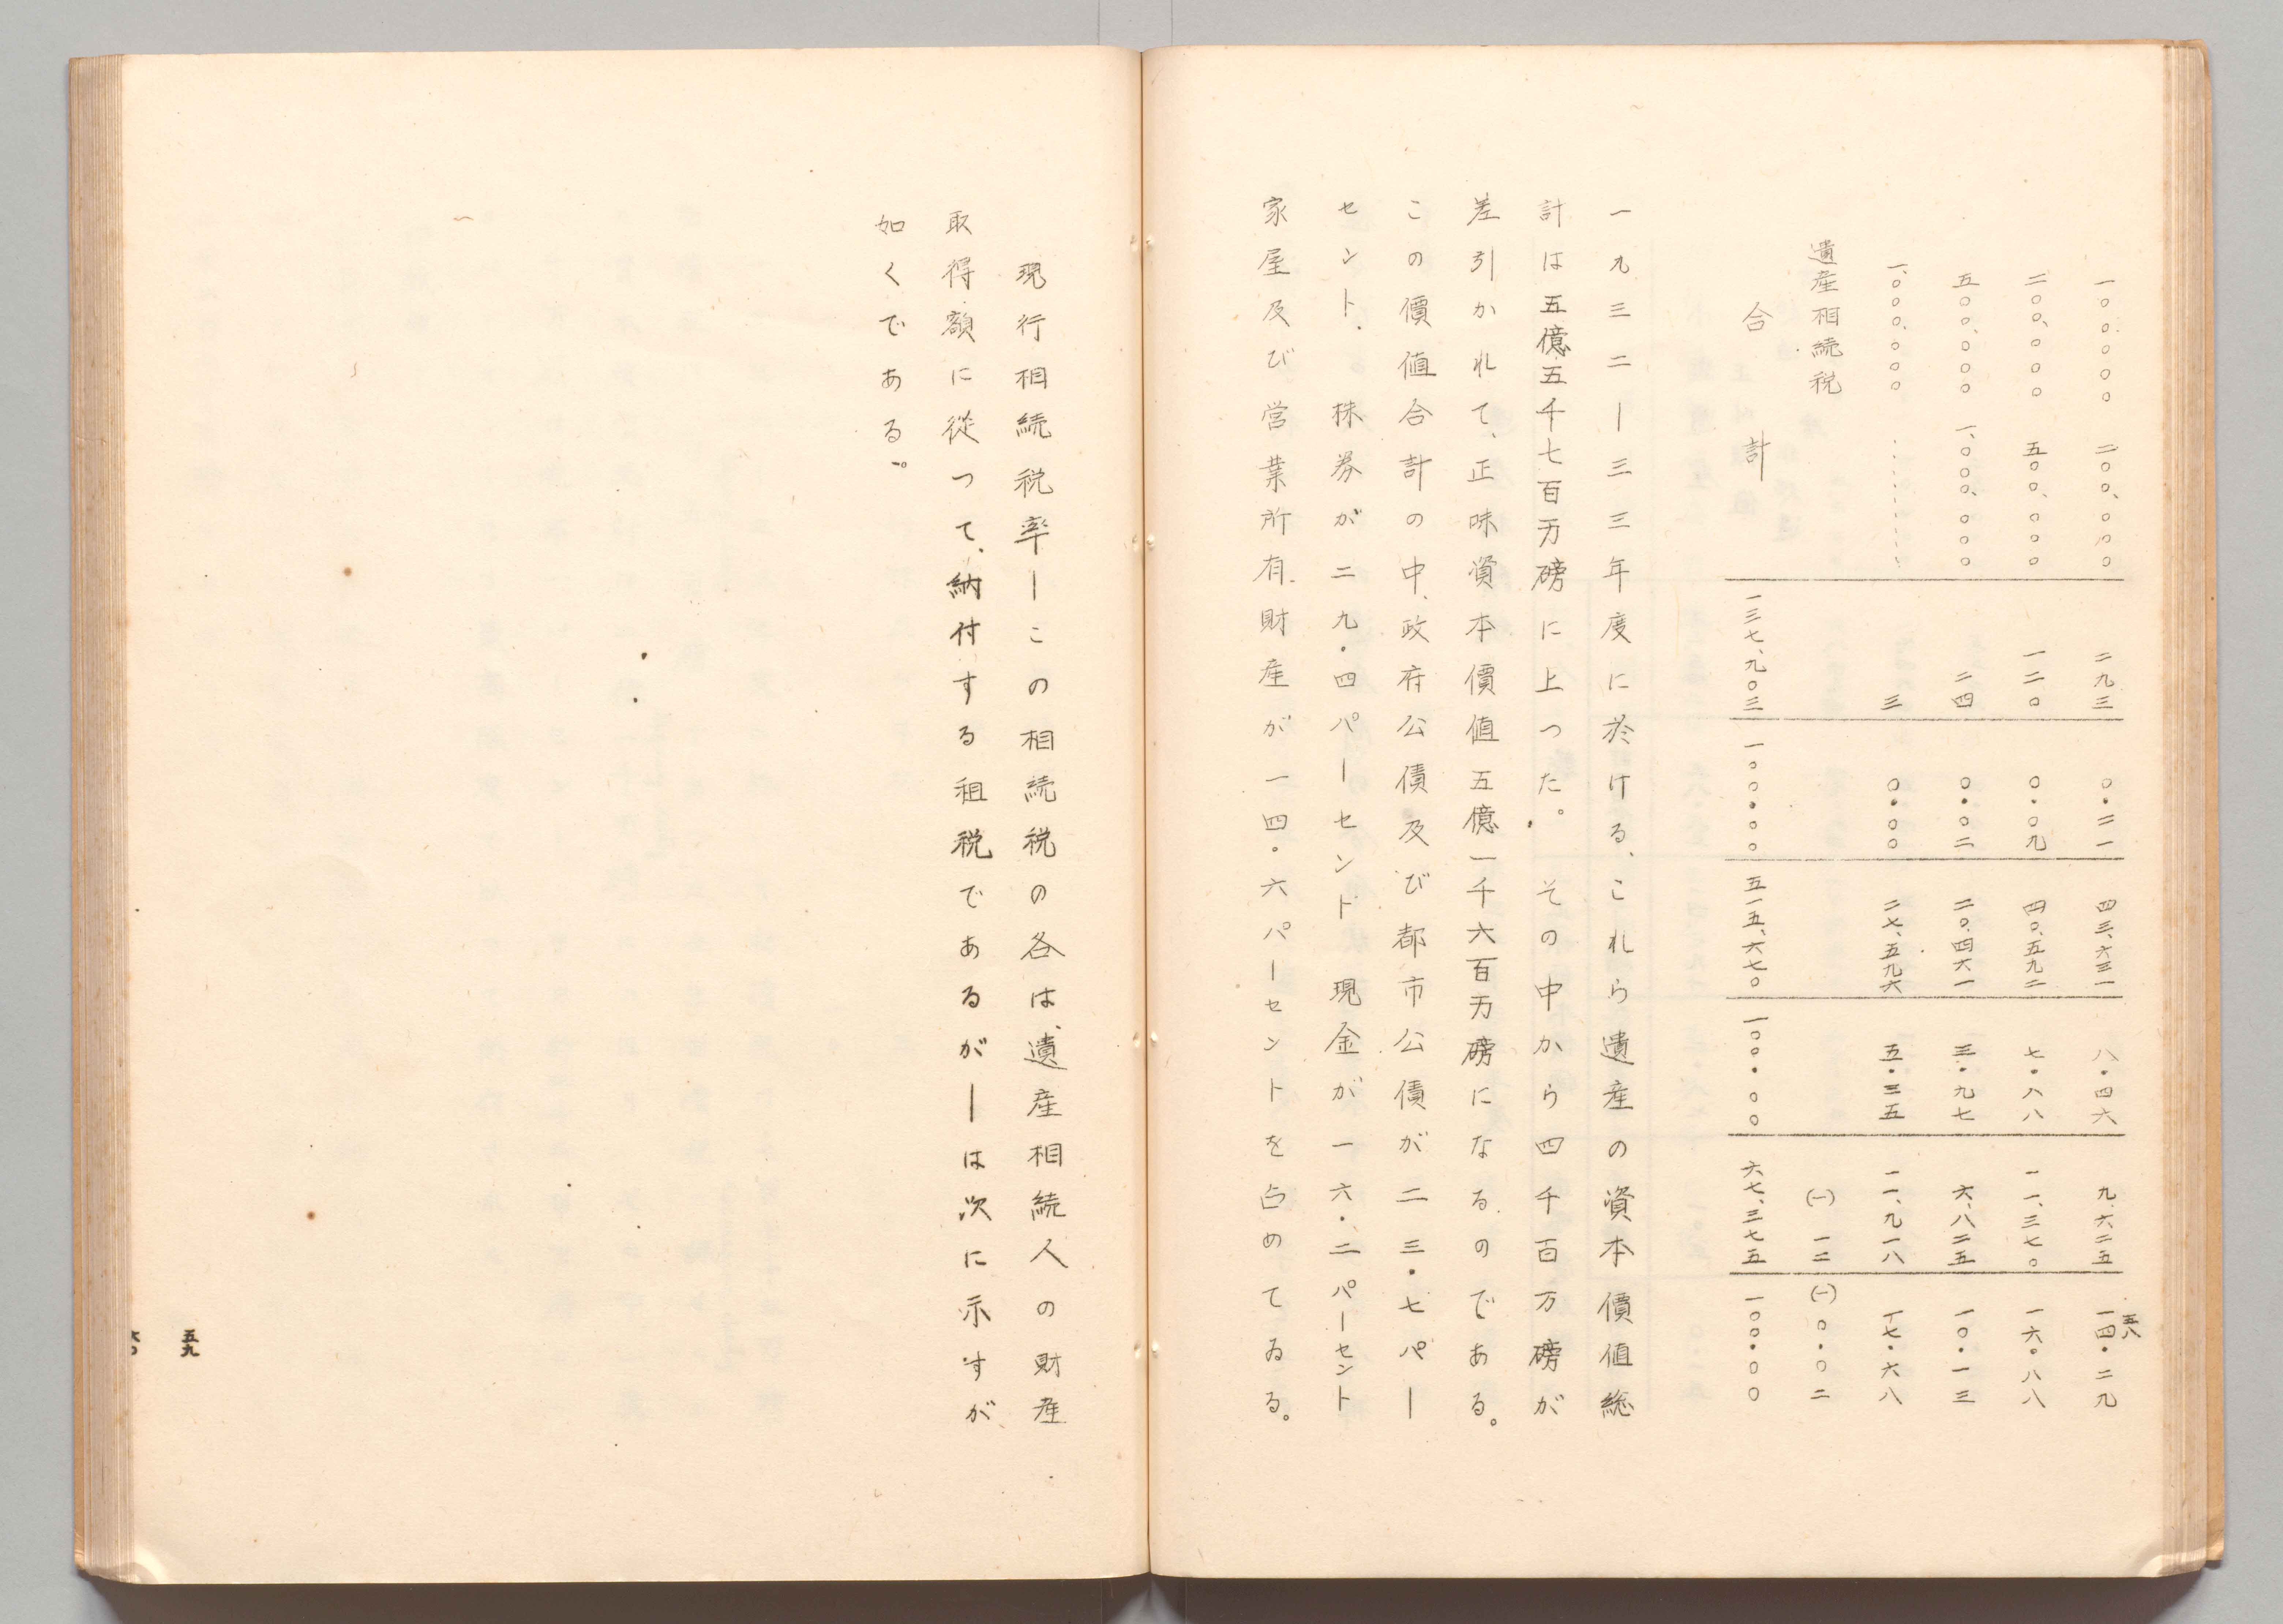 五八
一〇〇、〇〇〇 二〇〇、〇〇〇 二九三 〇・二一 四三、六三一 八・四六 九、六二五 一四・二九
二〇〇、〇〇〇 五〇〇、〇〇〇 一二〇 〇・〇九 四〇、五九二 七・八八 一一、三七〇 一六・八八
五〇〇、〇〇〇 一、〇〇〇、〇〇〇 二四 〇・〇二 二〇、四六一 三・九七 六、八二五 一〇・一三
一、〇〇〇、〇〇〇 ‥‥‥‥ 三 〇・〇〇 二七、五九六 五・三五 一一、九一八 一七・六八
遺産相続税 (一) 一二 (一) 〇・〇二
合計 一三七、九〇三 一〇〇・〇〇 五一五、六七〇 一〇〇・〇〇 六七、三七五 一〇〇・〇〇
一九三二ー三三年度に於ける、これら遺産の資本價値総
計は五億五千七百万磅に上つた。その中から四千百万磅が
差引かれて、正味資本價値五億一千六百万磅になるのである。
この價値合計の中、政府公債及び都市公債が二三・七パー
セント、株券が二九・四パーセント現金が一六・二パーセント
家屋及び営業所有財産が一四・六パーセントを占めてゐる。
現行相続税率ーこの相続税の各は遺産相続人の財産
取得額に從つて、納付する租税であるがーは次に示すが
如くである。
五九